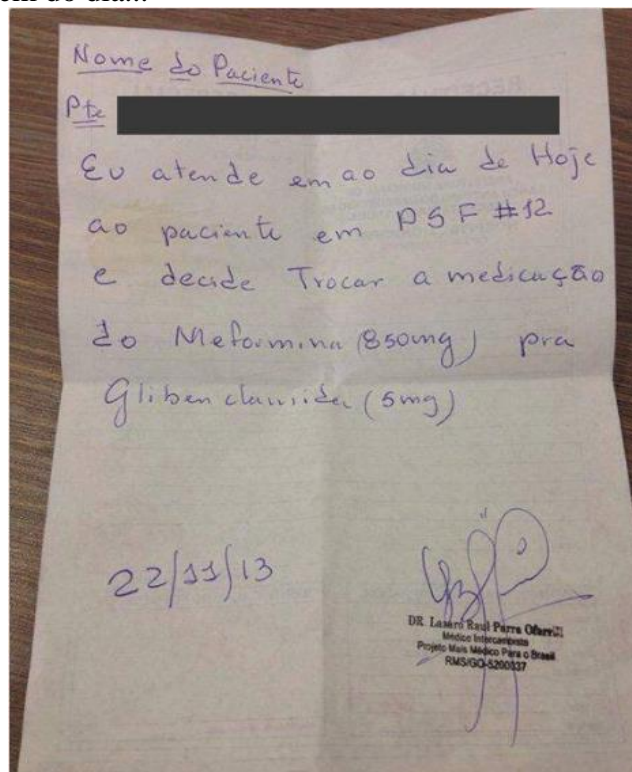 Nome do Paciente
Pte
Eu atende em ao dia de Hoje
ao paciente em PSF #12
e decide Trocar a medicação
do Meformina (850mg) pra
Glibenclamida (5mg)
22/11/13
DR. Lazaro Raul Parra Ofarrill
Médico Intercambista
Projeto Mais Médico Para o Brasil
RMS/GO-5200337